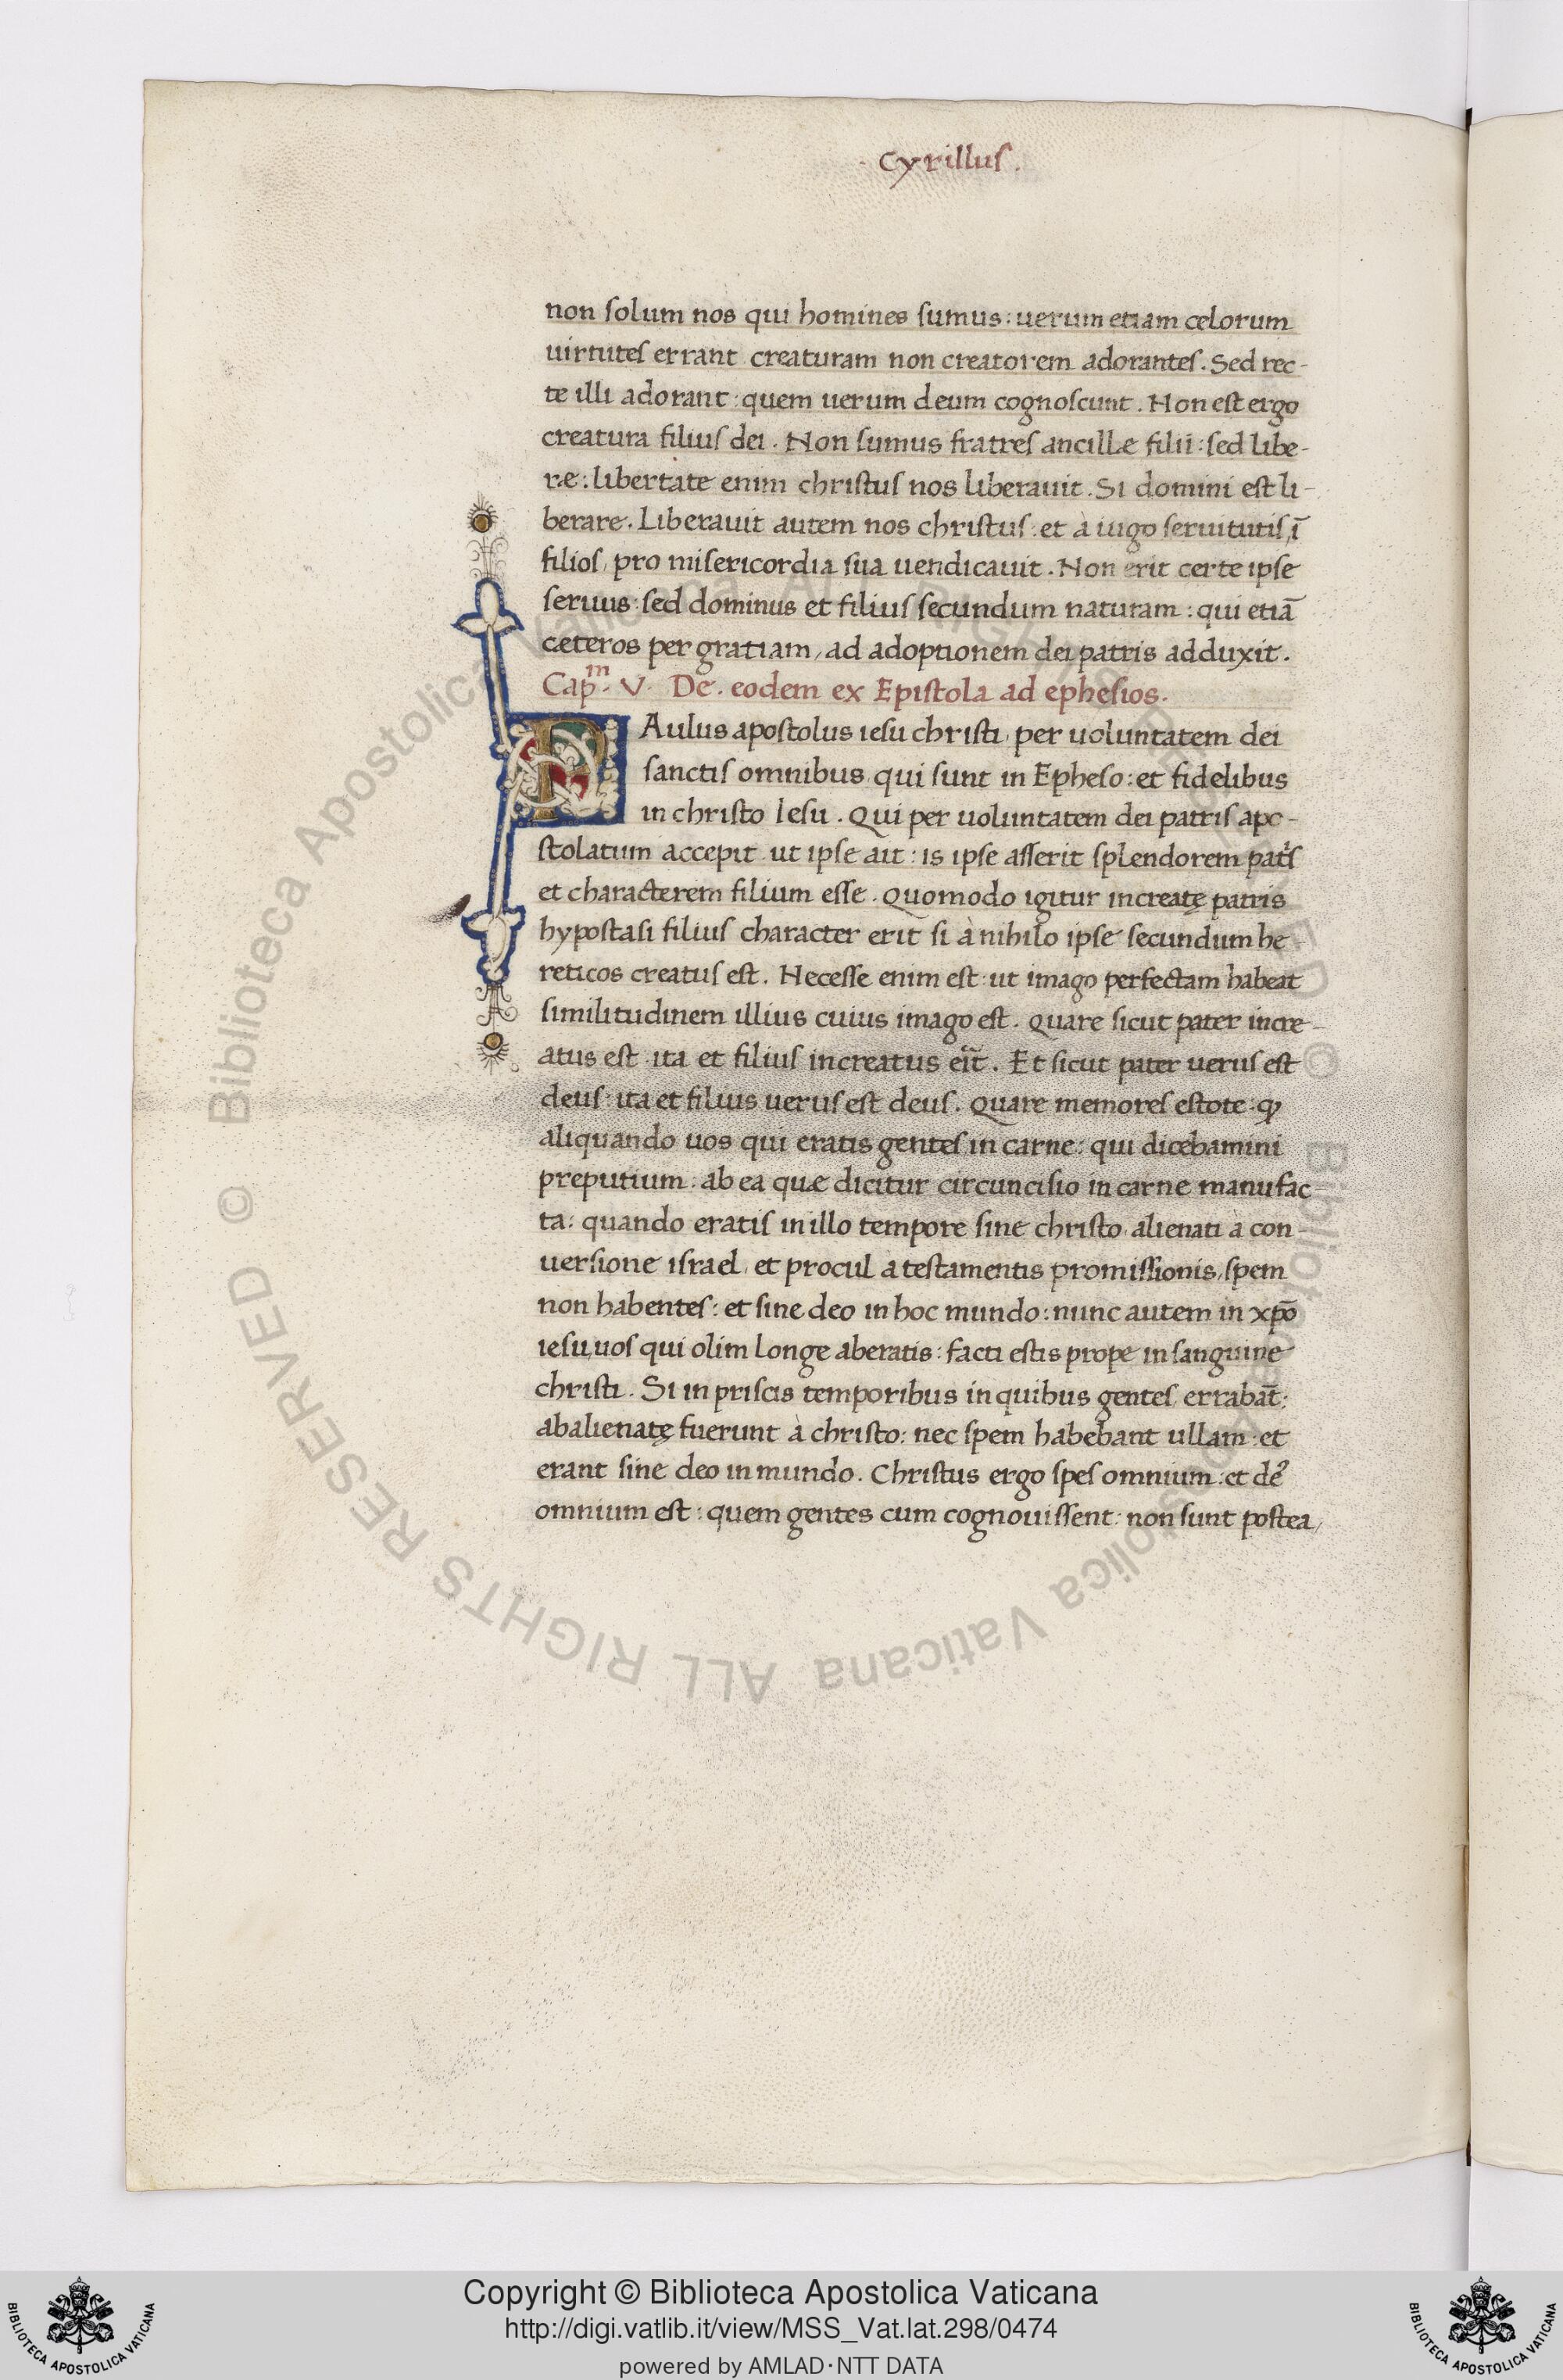 Cyrillus.
non solum nos qui homines sumus: uerum etiam celorum
uirtutes errant creaturam non creatorem adorantes. Sed rec-
te illi adorant: quem uerum deum cognoscunt. Non est ergo
creatura filius dei. Non sumus fratres ancillæ filii: sed libe-
ræ: libertate enim christus nos liberauit. Si domini est li-
berare. Liberauit autem nos christus: et à iugo seruitutis, ī
filios, pro misericordia sua uendicauit. Non erit certe ipse
seruus: sed dominus et filius secundum naturam: qui etiā
cæteros per gratiam, ad adoptionem dei patris adduxit.
Cap.m V. De. eodem ex Epistola ad ephesios.
PAulus apostolus iesu christi, per uoluntatem dei
sanctis omnibus, qui sunt in Epheso: et fidelibus
in christo Iesu. Qui per uoluntatem dei patris apo-
stolatum accepit ut ipse ait: is ipse asserit splendorem patͥs
et characterem filium esse. Quomodo igitur increatę patris
hypostasi filius character erit si à nihilo ipse secundum he-
reticos creatus est. Necesse enim est: ut imago perfectam habeat
similitudinem illius cuius imago est. Quare sicut pater incre-
atus est ita et filius increatus eı̃t. Et sicut pater uerus est
deus: ita et filius uerus est deus. Quare memores estote: ꝙ
aliquando uos qui eratis gentes in carne: qui dicebamini
preputium: ab ea quæ dicitur circuncisio in carne manufac-
ta: quando eratis in illo tempore sine christo alienati à con-
uersione israel, et procul a testamentis promissionis, spem
non habentes: et sine deo in hoc mundo: nunc autem in xpō
iesu, uos qui olim longe aberatis: facti estis prope in sanguine
christi. Si in priscis temporibus in quibus gentes errabāt:
abalienatę fuerunt à christo: nec spem habebant ullam: et
erant sine deo in mundo. Christus ergo spes omnium: et deꝰ
omnium est: quem gentes cum cognouissent: non sunt postea,
© Biblioteca Apostolica Vaticana ALL RIGHTS RESERVED
© Biblioteca Apostolica Vaticana ALL RIGHTS RESERVED
Copyright © Biblioteca Apostolica Vaticana
http://digi.vatlib.it/view/MSS_Vat.lat.298/0474
powered by AMLAD·NTT DATA
BIBLIOTECA APOSTOLICA VATICANA
BIBLIOTECA APOSTOLICA VATICANA